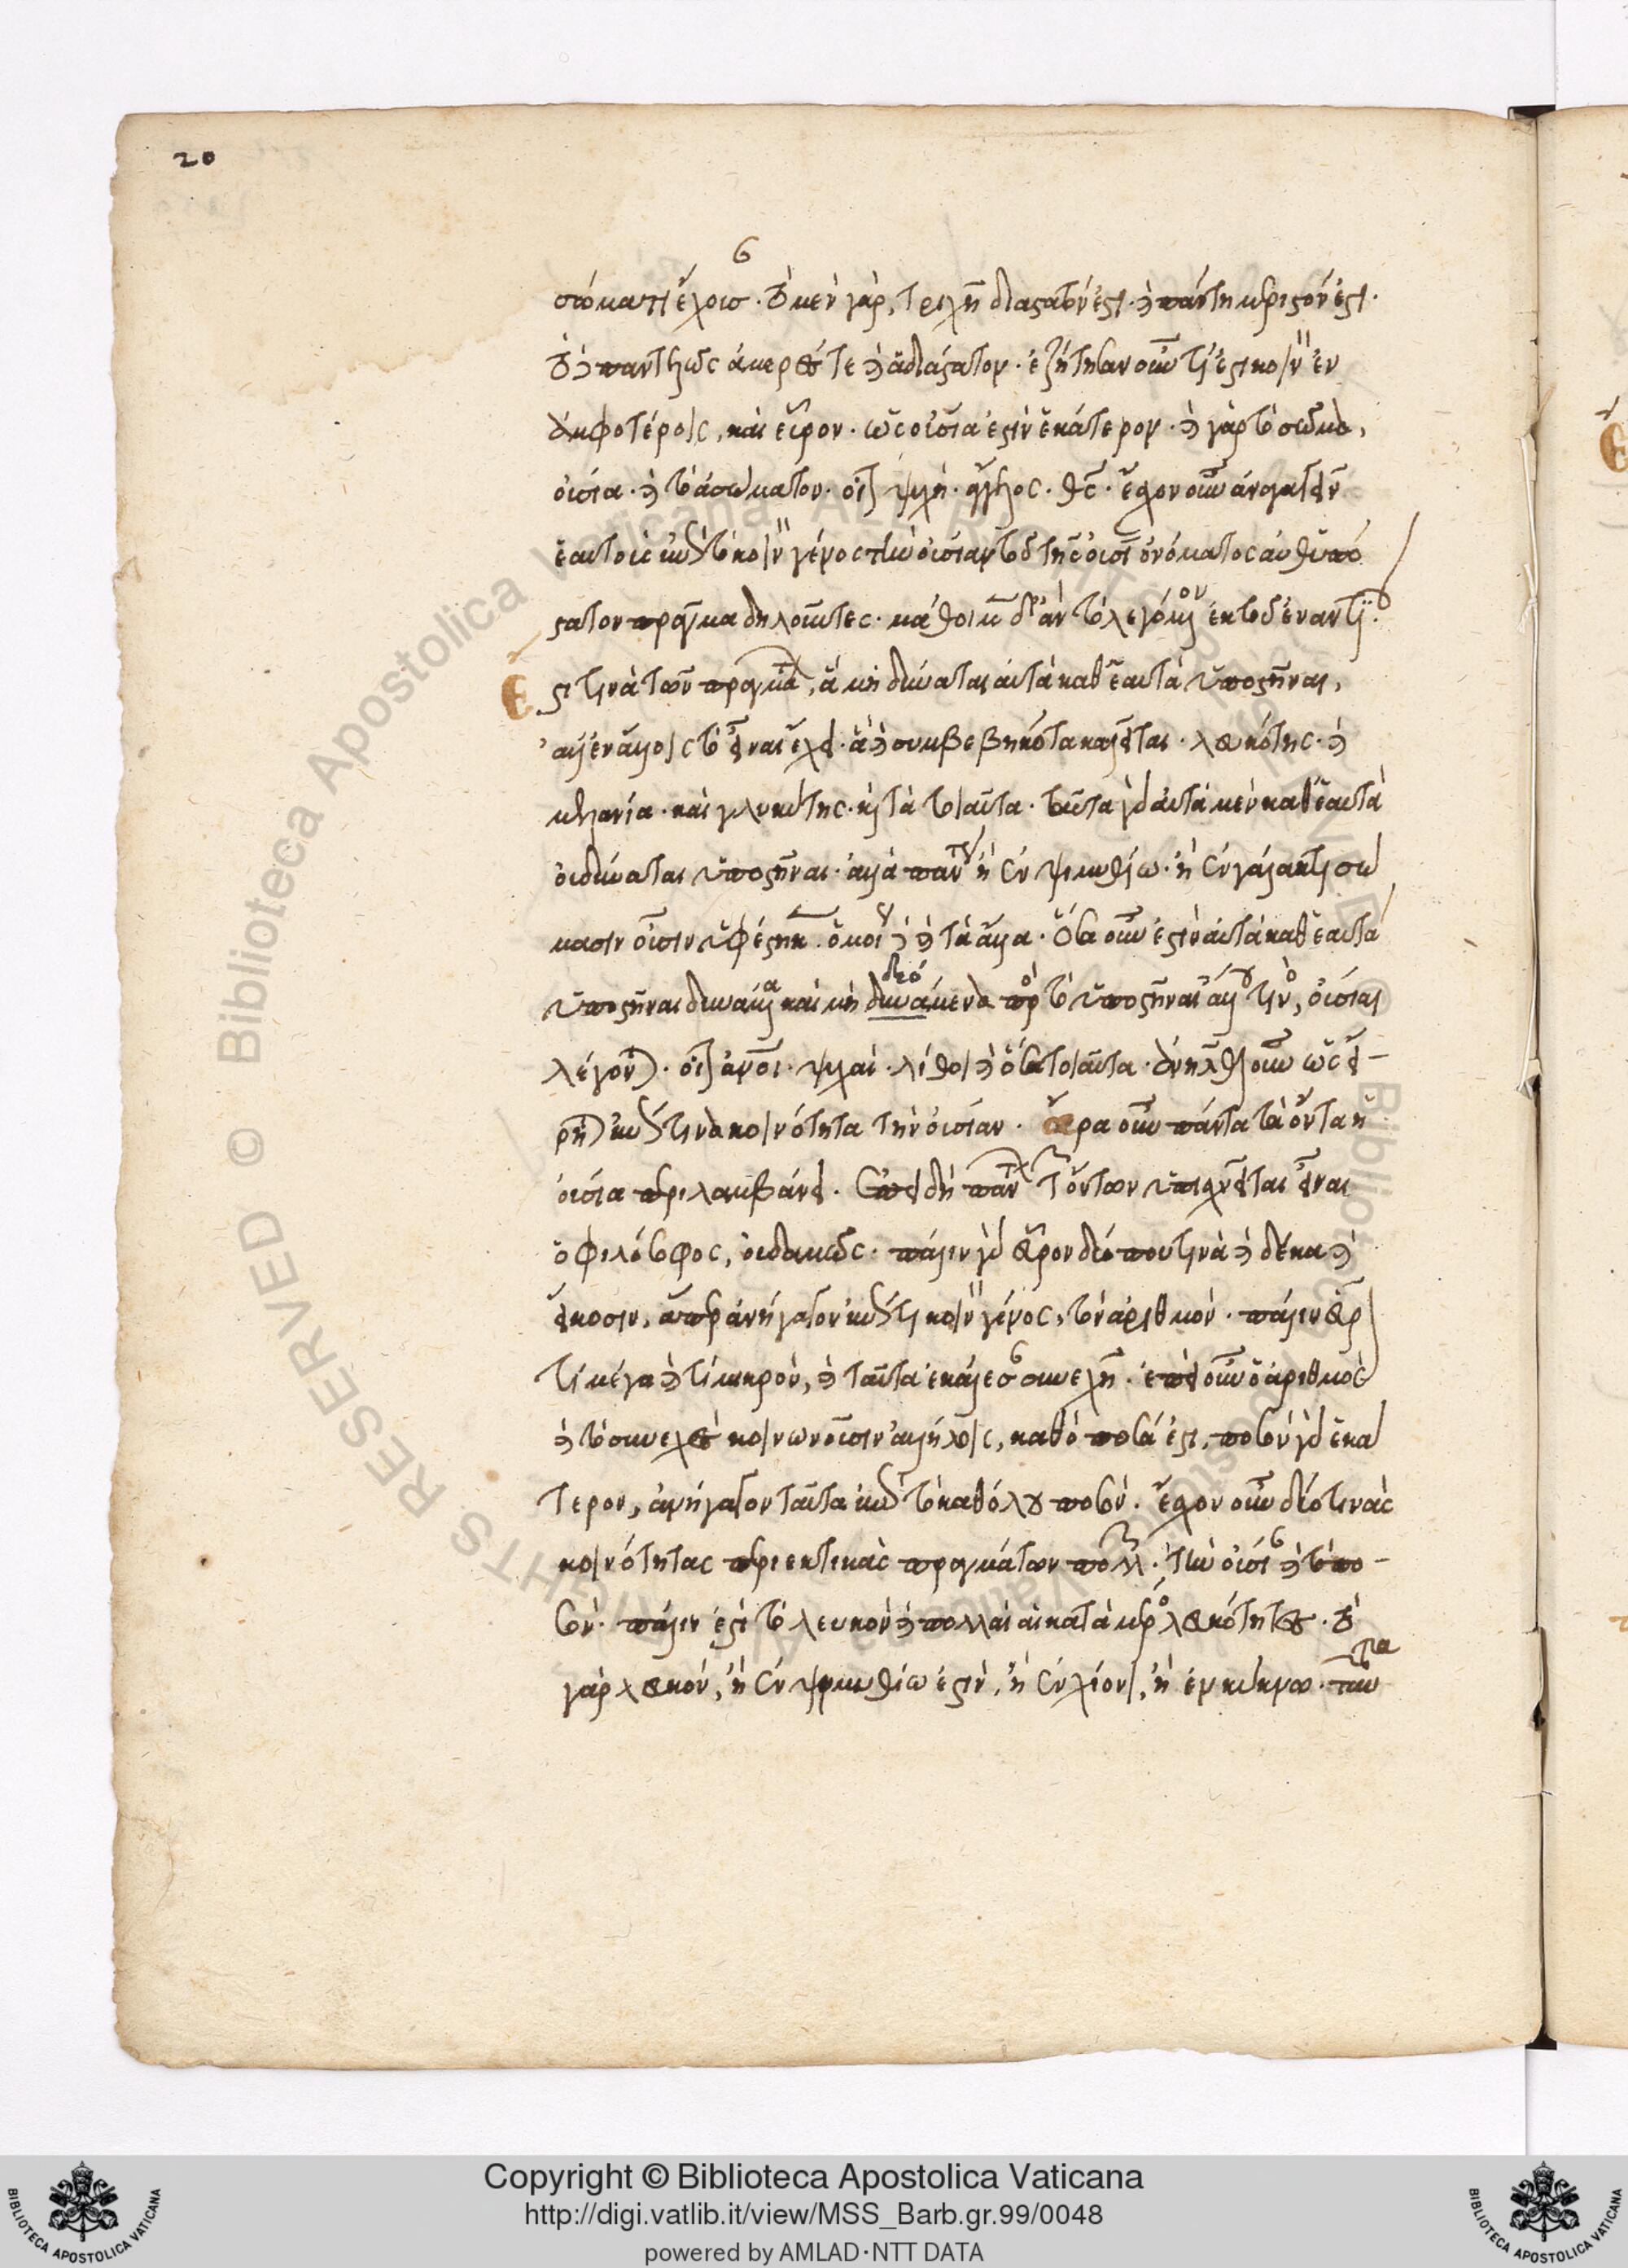 20
σώματι ἔχουσι. τὸ μὲν γάρ, τριχῆ διαστατόν ἐστι. καὶ πάντη μεριστόν ἐστι.
τὸ δὲ παντελῶς ἀμερές τε καὶ ἀδιάστατον. ἐζήτησαν οὖν τί ἐστι κοινὸν ἐν
ἀμφοτέροις, καὶ εὗρον. ὡς οὐσία ἐστὶν ἑκάτερον. καὶ γὰρ τὸ σῶμα,
οὐσία. καὶ τὸ ἀσώματον. οἷον ψυχή. ἄγγελος. θς. ἔσχον οὖν ἀναγαγεῖν
ἑαυτοὺς ἐπὶ τὸ κοινὸν γένος τὴν οὐσίαν τοῦ τῆς οὐσίας ὀνόματος αὐθυπό
στατον πρᾶγμα δηλοῦντες. μάθοιμεν δ' ἂν τὸ λεγόμενον ἐκ τοῦ ἐναντίου.
Ἔστι τινὰ τῶν πραγμάτων, ἃ μὴ δύναται αὐτὰ καθ' ἑαυτὰ ὑποστῆναι,
ἀλλ' ἐν ἄλλοις τὸ εἶναι ἔχει. ἃ καὶ συμβεβηκότα καλεῖται. λευκότης. καὶ
μελανία. καὶ γλυκύτης. καὶ τὰ τοιαῦτα. ταῦτα γὰρ αὐτὰ μὲν καθ' ἑαυτὰ
οὐ δύναται ὑποστῆναι. ἀλλὰ πάντως ἢ ἐν ψιμυθίω. ἢ ἐν γάλακτι σώ
μασιν οὖσιν ὑφέστηκεν. ὁμοίως δὲ καὶ τὰ ἄλλα. ὅσα οὖν ἐστὶν αὐτὰ καθ' ἑαυτὰ
ὑποστῆναι δυνάμενα καὶ μὴ δυνάμενα πρὸς τὸ ὑποστῆναι ἄλλου τινός, οὐσίαι
δεό
λέγονται. οἷον ἄνοι. ψυχαί. λίθοι καὶ ὅσα τοιαῦτα. ἀνῆλθον οὖν ὡς εἴ-
ρηται ἐπὶ τινα κοινότητα τὴν οὐσίαν. ἆρα οὖν πάντα τὰ ὄντα ἡ
οὐσία περιλαμβάνει. ἐπειδὴ πάντων τῶν ὄντων ὑπισχνεῖται εἶναι
ὁ φιλόσοφος, οὐδαμῶς. πάλιν γὰρ εὗρον δύο που τινὰ καὶ δέκα καὶ
εἴκοσιν, ἅπερ ἀνήγαγον ἐπὶ τι κοινὸν γένος, τὸν ἀριθμόν. πάλιν εὗρον
τὶ μέγα καὶ τὶ μικρόν, καὶ ταῦτα ἐκάλεσαν συνεχῆ. ἐπεὶ οὖν ὁ ἀριθμὸς
καὶ τὸ συνεχὲς κοινωνοῦσιν ἀλλήλοις, καθὸ ποσά ἐστι, ποσὸν γὰρ ἑκά
τερον, ἀνήγαγον ταῦτα ἐπὶ τὸ καθόλου ποσόν. ἔσχον οὖν δύο τινὰς
κοινότητας περιεκτικὰς πραγμάτων πολλῶν. τὴν οὐσίαν καὶ τὸ πο-
σόν. πάλιν ἐστὶ τὸ λευκὸν καὶ πολλαὶ αἱ κατὰ μέρος λευκότητες. τὸ
γὰρ λευκόν, ἢ ἐν ψιμυθίω ἐστὶν, ἢ ἐν χιόνι, ἢ ἐν κύκνω.
© Biblioteca Apostolica Vaticana ALL RIGHTS RESERVED
Copyright © Biblioteca Apostolica Vaticana
http://digi.vatlib.it/view/MSS_Barb.gr.99/0048
powered by AMLAD·NTT DATA
BIBLIOTECA APOSTOLICA VATICANA
BIBLIOTECA APOSTOLICA VATICANA